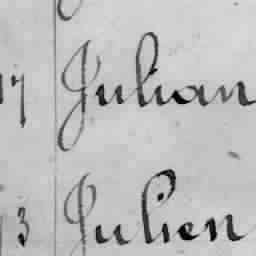 17 Julian
3 Julien